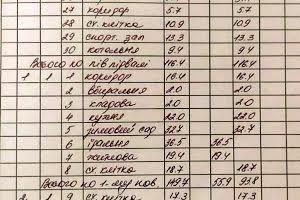 27 коридор 5.7 5.7
28 сх. клітка 10.9 10.9
29 спорт. зал 13.3 13.3
30 котельня 9.4 9.4
Всього по пів підвалі 116.4 116.4
1 1 1 коридор 16.4 16.4
2 вбиральня 2.0 2.0
3 кладова 2.0 2.0
4 кухня 22.0 22.0
5 зимовий сад 32.7 32.7
6 їдальня 36.5 36.5
7 житлова 19.4 19.4
8 сх. клітка 18.7 18.7
Всього по 1-му пов. 149.7 55.9 93.8
2 1 9 сх. клітка 17.3 17.3